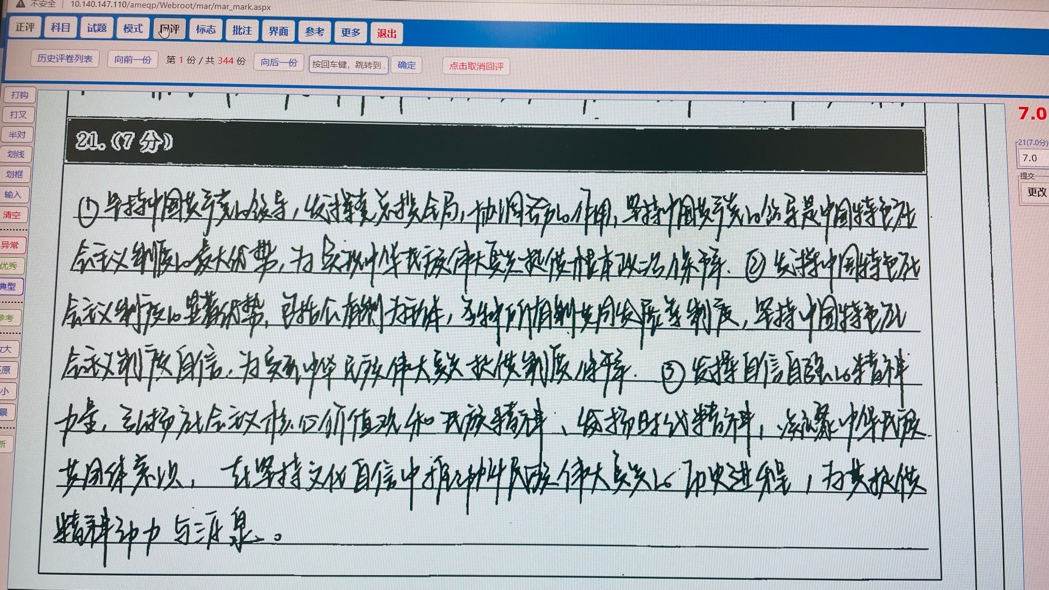 不安全 10.140.147.110/ameqp/Webroot/mar/mar_mark.aspx
正评 科目 试题 模式 回评 标志 批注 界面 参考 更多 退出
历史评卷列表 向前一份 第 1 份 / 共 344 份 向后一份 按回车键，跳转到 确定 点击取消回评
打钩
打叉
半对
划线
划框
输入
清空
异常
优秀
典型
7.0
21(7.0分)
7.0
提交
更改
21.（7 分）
①坚持中国共产党的领导，发挥党总揽全局，协调各方的作用，坚持中国共产党的领导是中国特色社
会主义制度的最大优势，为实现中华民族伟大复兴提供根本政治保障。②发挥中国特色社
会主义制度的显著优势，包括公有制为主体，多种所有制共同发展等制度，坚持中国特色社
会主义制度自信，为实现中华民族伟大复兴提供制度保障。③发挥自信自强的精神
力量，弘扬社会主义核心价值观和民族精神、发扬时代精神，凝聚中华民族
共同体意识，在坚持文化自信中推动中华民族伟大复兴的历史进程，为其提供
精神动力与源泉。